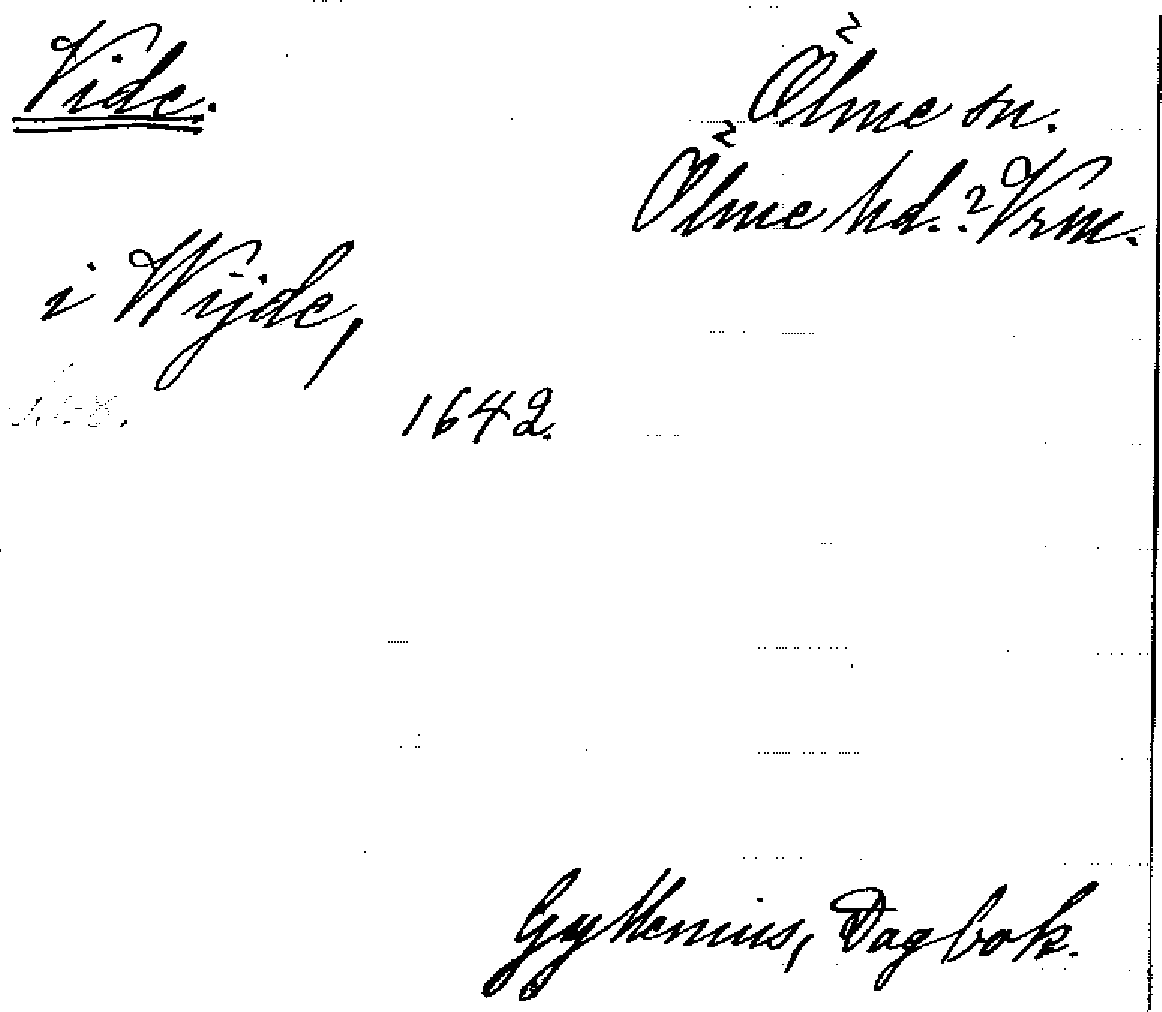 Vide.
Ölme sn.
Ölme hd.? Vrm.
i Wijde,
1642.
Gyllenius, Dagbok.